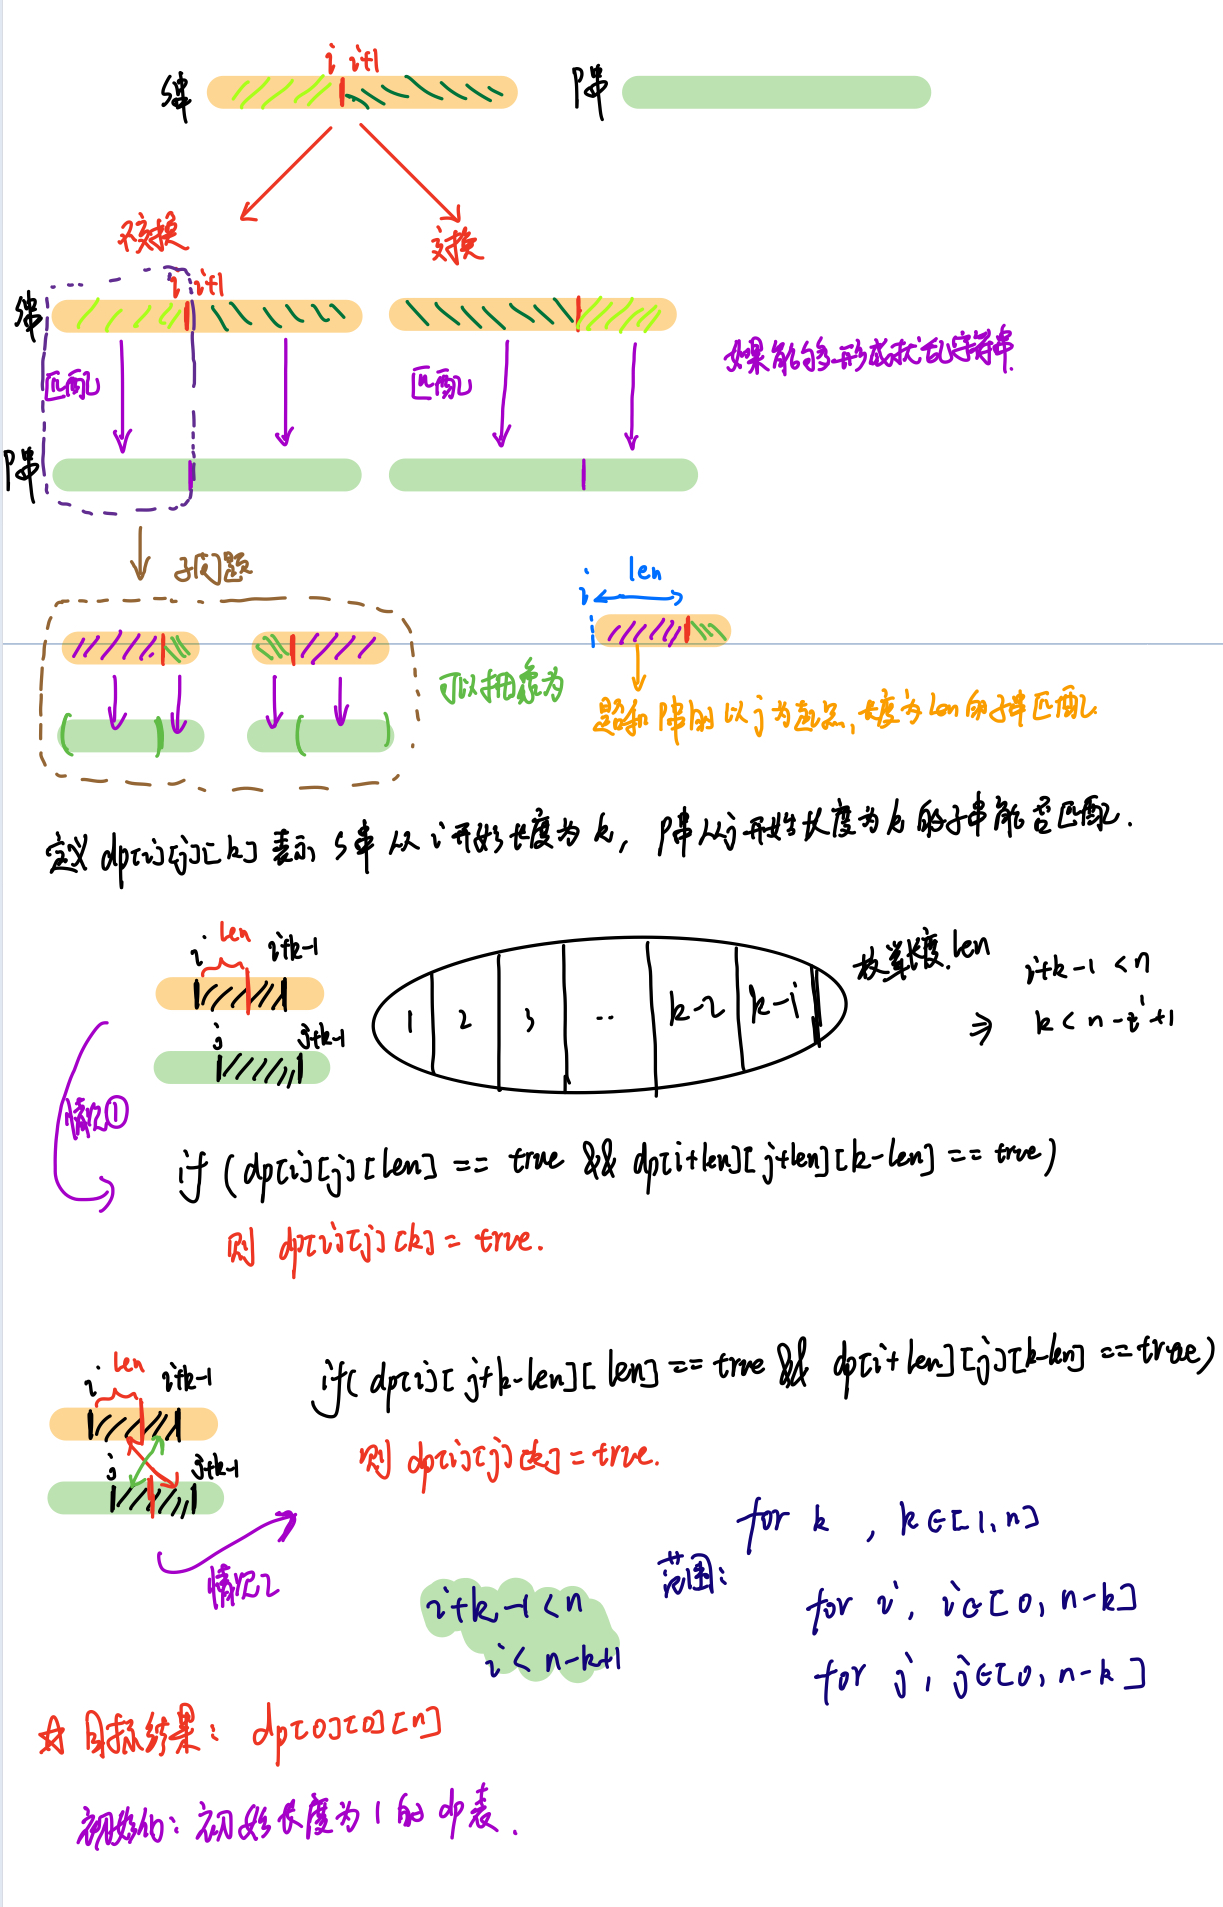 i i+1
S串
P串
不交换
交换
i i+1
S串
匹配
匹配
如果能够形成扰乱字符串.
P串
子问题
i len
可以抽象为
是否和P串的以j为起点,长度为len的子串匹配
定义dp[i][j][k]表示S串从i开始长度为k, P串从j开始长度为k的子串能否匹配.
i len i+k-1
j j+k-1
1 2 3 .. k-2 k-1
枚举长度len
i+k-1 < n
⇒ k < n-i+1
情况①
if (dp[i][j][len] == true && dp[i+len][j+len][k-len] == true)
则 dp[i][j][k] = true.
i len i+k-1
j j+k-1
if( dp[i][j+k-len][len] == true && dp[i+len][j][k-len] == true)
则 dp[i][j][k] = true.
情况2
i+k-1 < n
i < n-k+1
范围:
for k , k∈[1,n]
for i, i∈[0, n-k]
for j, j∈[0, n-k]
☆ 目标结果: dp[0][0][n]
初始化: 初始长度为1的dp表.